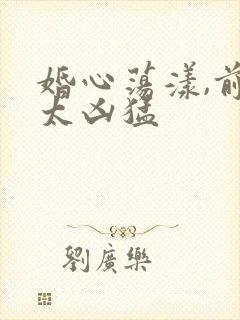 婚心荡漾,前
太凶猛
劉廣樂